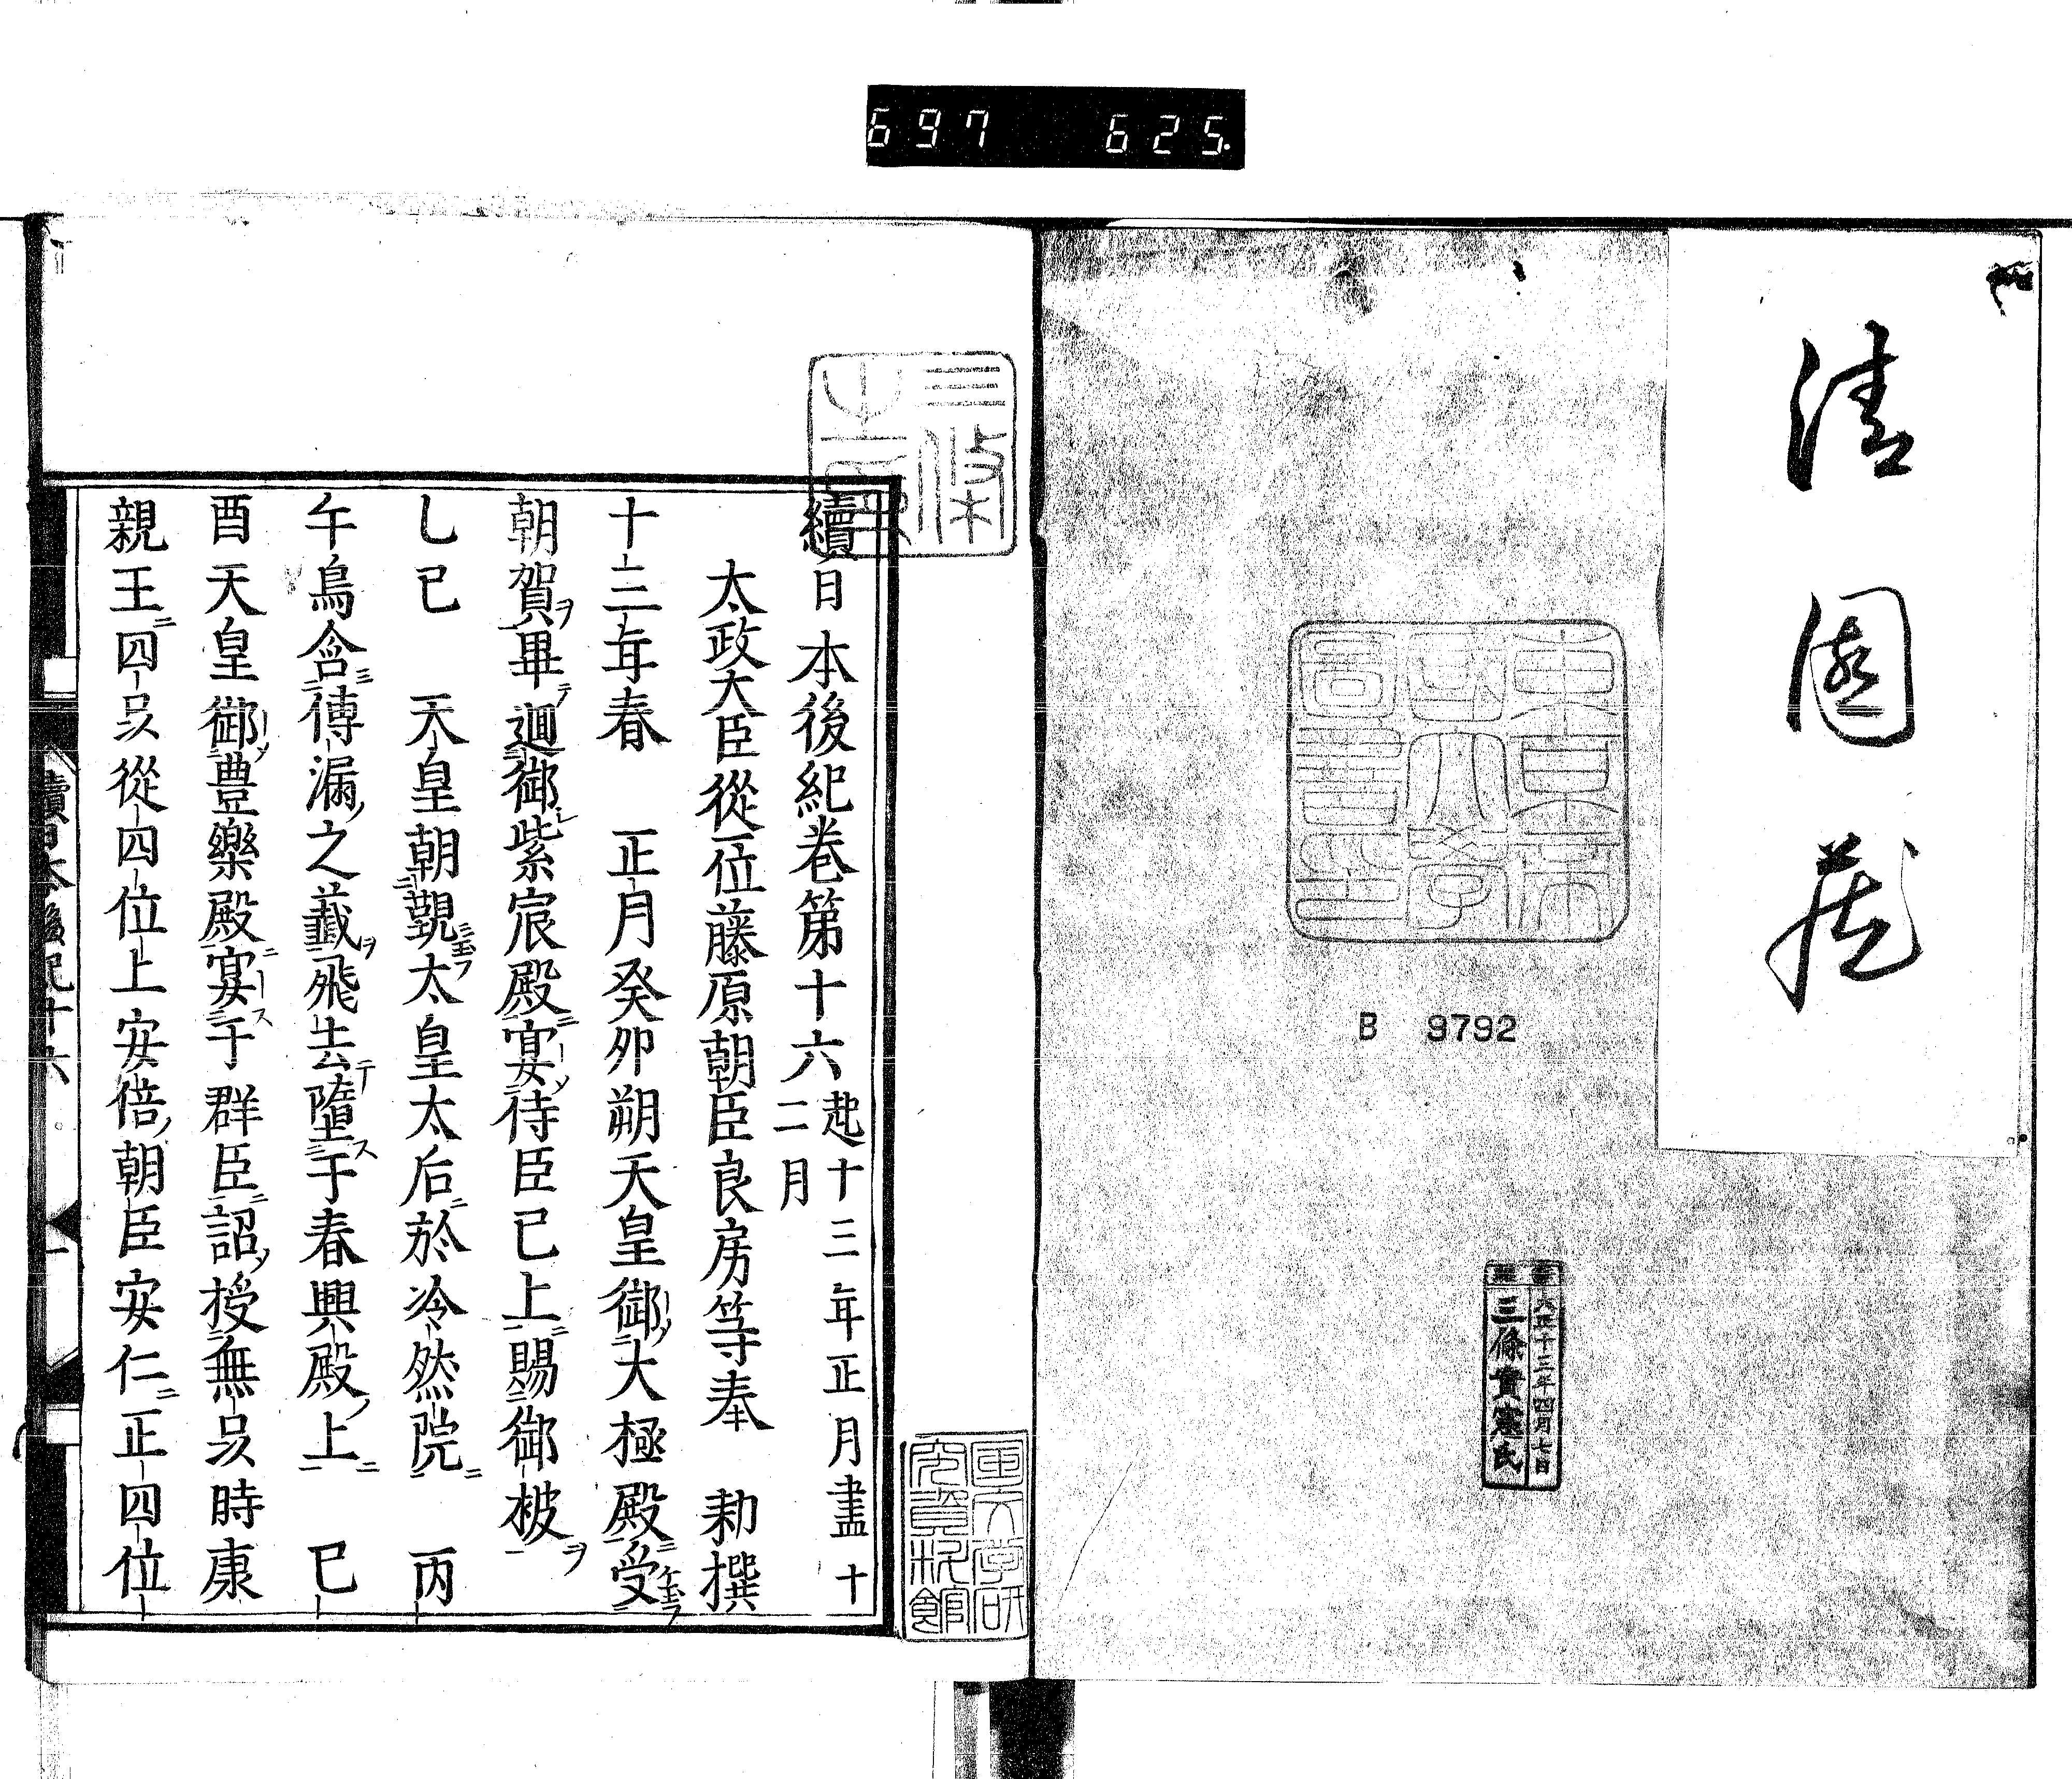 697 625.
清園蔵
東京帝国大学図書之印
B 9792
大正十三年四月七日
三條實憲氏
國文学研究資料館
續日本後紀巻第十六起十三年正月盡十二月
太政大臣從一位藤原朝臣良房等奉 勅撰
十三年春 正月癸夘朔天皇御大極殿受
朝賀畢廻御紫宸殿宴待臣已上賜御被
乚巳 天皇朝覲太皇太后於冷然院 丙
午烏含傳漏之籖飛去墮于春興殿上 巳
酉天皇御豊樂殿宴于群臣詔授無品時康
親王四品從四位上安倍朝臣安仁正四位
續日本後紀十六 一